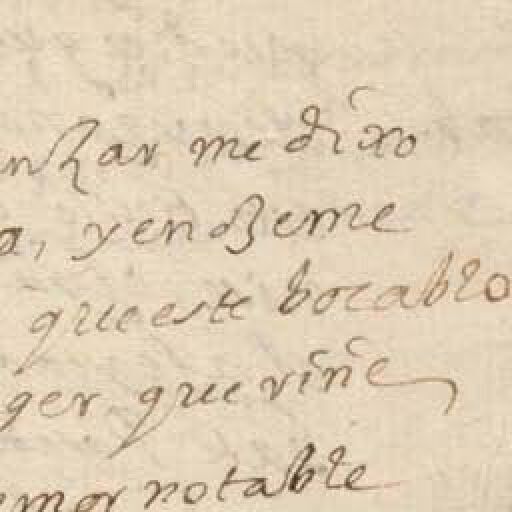 nzar me dixo
a, y endeme
que este bocablo
ger que riñe
emor notable